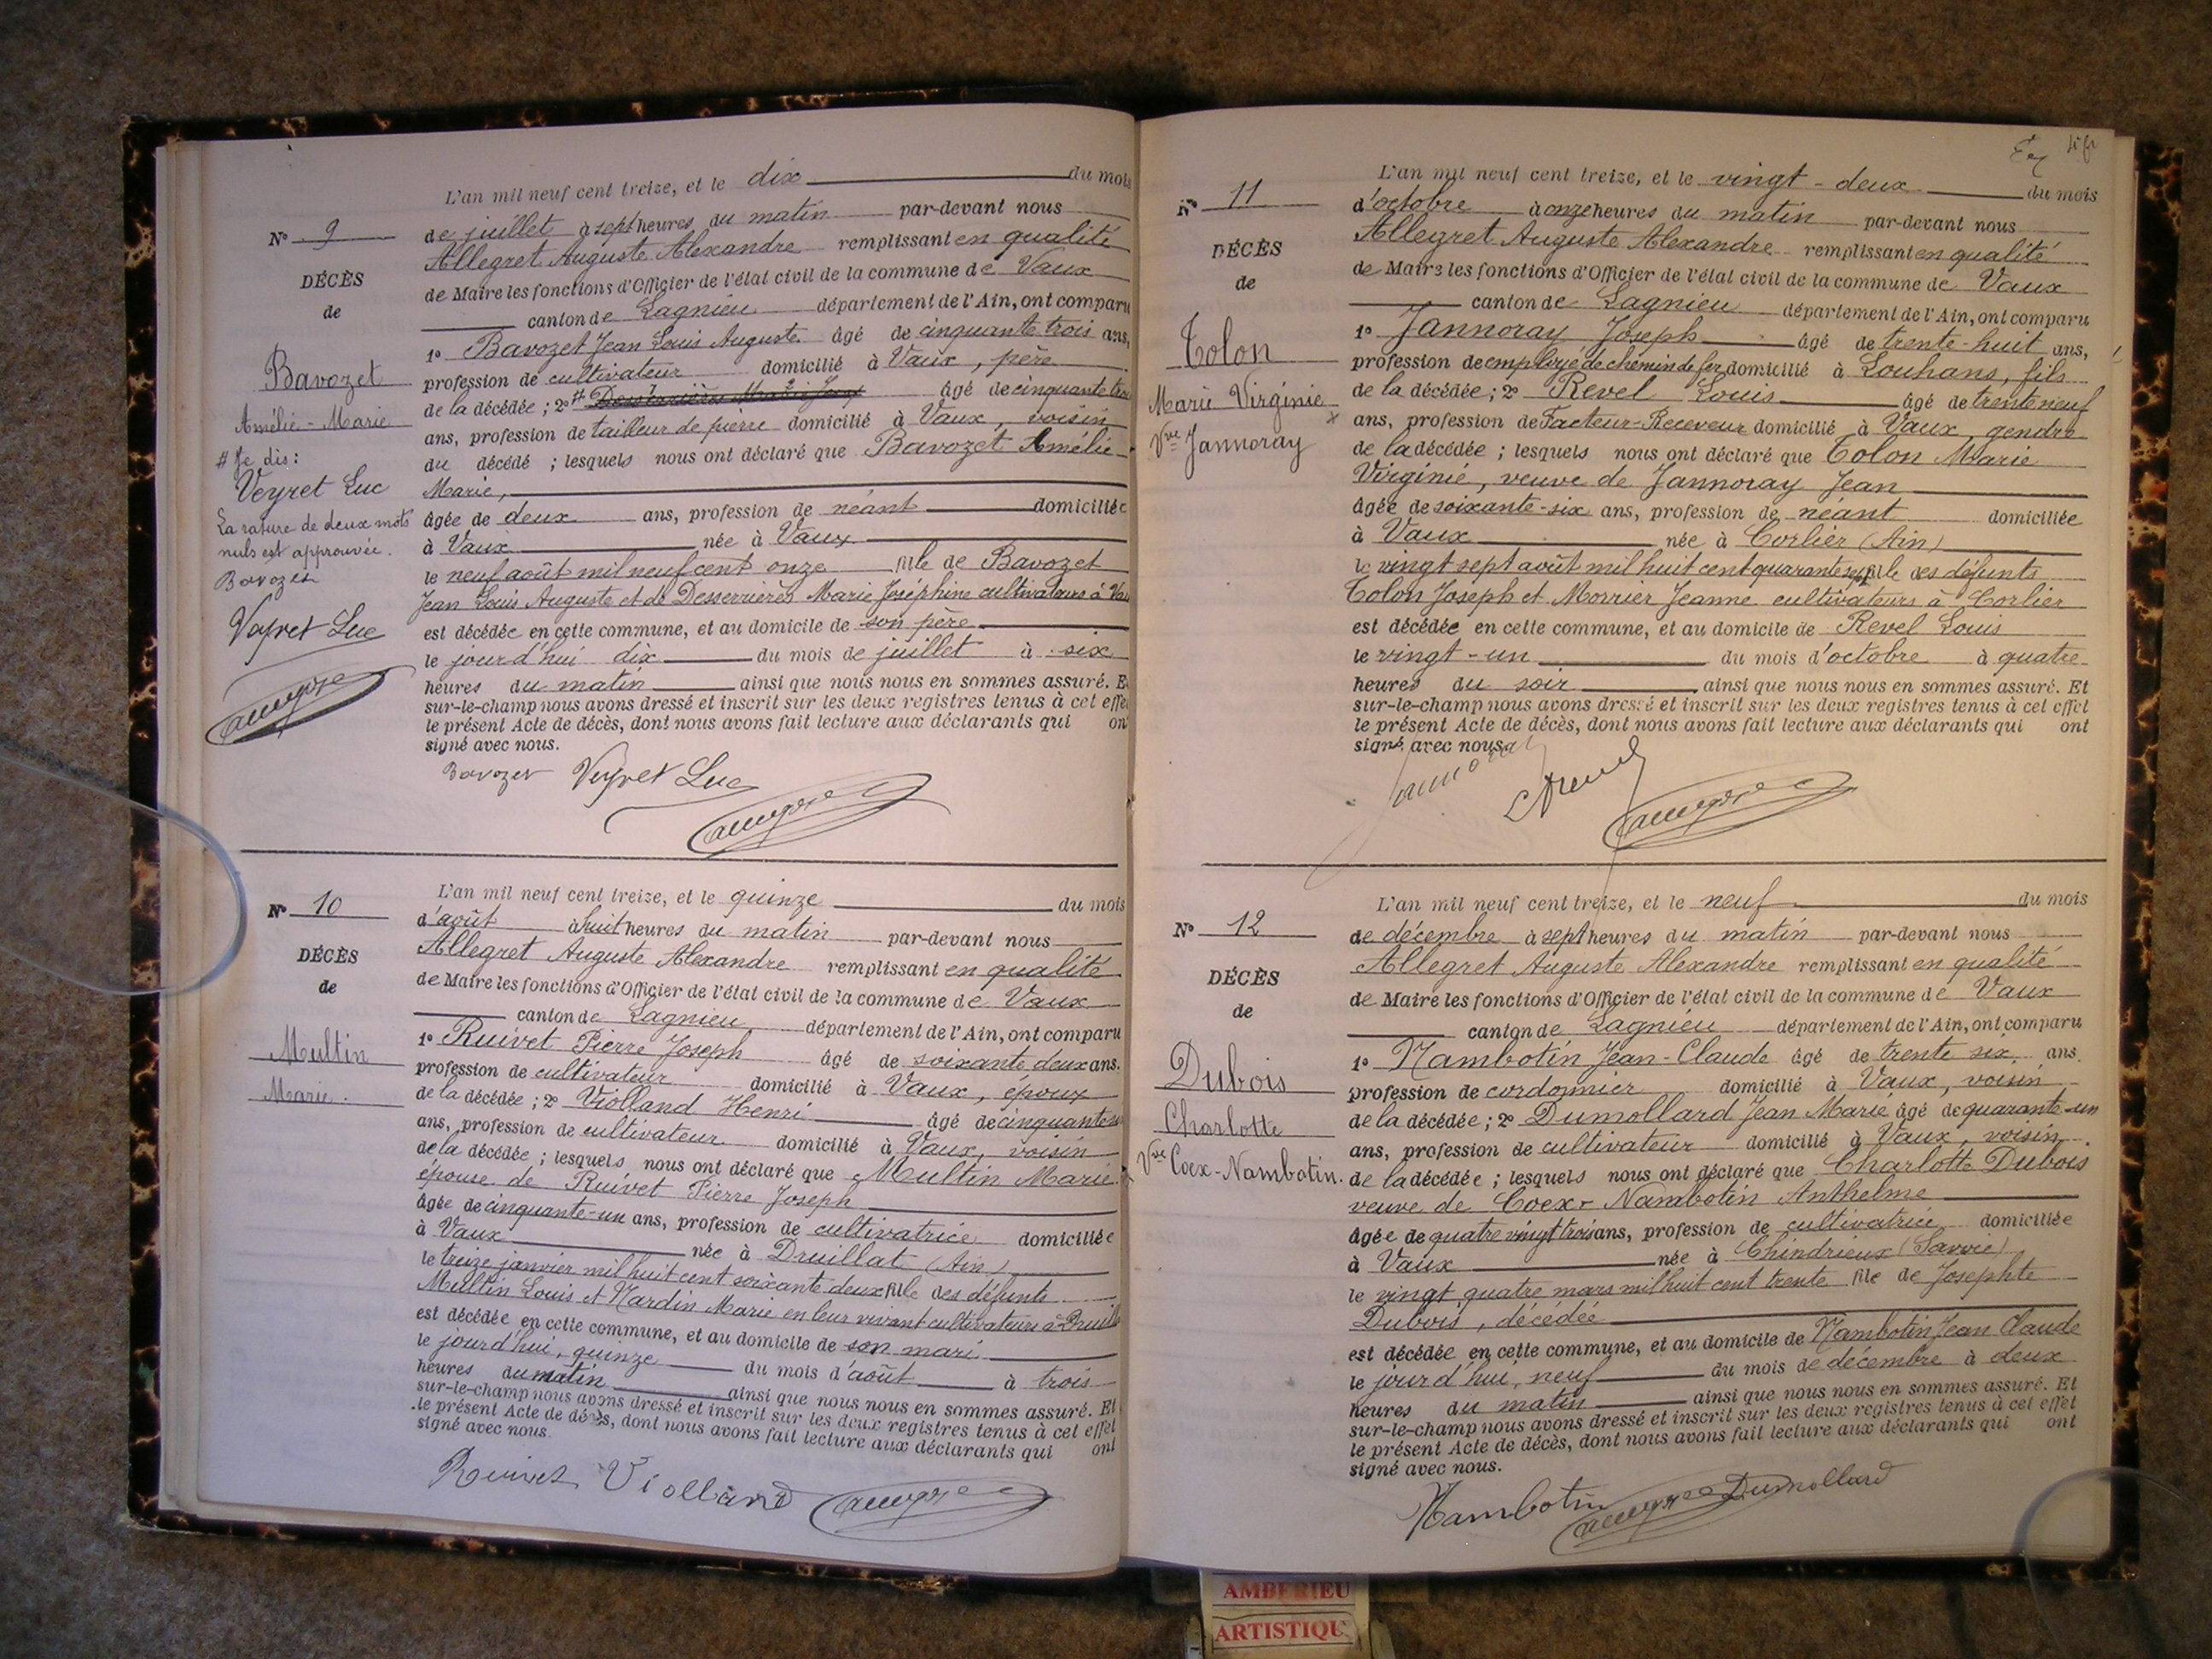 L'an mil neuf cent treize, et le dix du mois
de juillet à sept heures du matin par-devant nous
Allegret Auguste Alexandre remplissant en qualité
de Maire les fonctions d'Officier de l'état civil de la commune de Vaux
canton de Lagnieu département de l'Ain, ont comparu
1º Bavozet Jean Louis Auguste âgé de cinquante trois ans,
profession de cultivateur domicilié à Vaux, père
de la décédée ; 2º # âgé de cinquante
ans, profession de tailleur de pierre domicilié à Vaux, voisin
du décédé ; lesquels nous ont déclaré que Bavozet Amélie-
Marie,
âgée de deux ans, profession de néant domiciliée
à Vaux née à Vaux
le neuf août mil neuf cent onze fille de Bavozet
Jean Louis Auguste et de Desserrières Marie Joséphine cultivateurs à
est décédée en cette commune, et au domicile de son père
le jourd'hui dix du mois de juillet à six
heures du matin ainsi que nous nous en sommes assuré. E
sur-le-champ nous avons dressé et inscrit sur les deux registres tenus à cet effe
le présent Acte de décès, dont nous avons fait lecture aux déclarants qui on
signé avec nous.
Bavozet Veyret Luc
Nº 9
DÉCÈS
de
Bavozet
Amélie-Marie
# Je dis :
Veyret Luc
La rature de deux mots
nuls est approuvée.
Bavozet
Veyret Luc
L'an mil neuf cent treize, et le quinze du mois
d'août à huit heures du matin par-devant nous
Allegret Auguste Alexandre remplissant en qualité
de Maire les fonctions d'Officier de l'état civil de la commune de Vaux
canton de Lagnieu département de l'Ain, ont comparu
1º Ruivet Pierre Joseph âgé de soixante deux ans.
profession de cultivateur domicilié à Vaux, époux
de la décédée ; 2º Violland Henri âgé de
ans, profession de cultivateur domicilié à Vaux, voisin
de la décédée ; lesquels nous ont déclaré que Multin Marie
épouse de Ruivet Pierre Joseph
âgée de cinquante-un ans, profession de cultivatrice domiciliée
à Vaux née à Druillat (Ain)
le treize janvier mil huit cent soixante deux fille des défunts
Multin Louis et Nardin Marie en leur vivant cultivateurs à
est décédée en cette commune, et au domicile de son mari
le jourd'hui, quinze du mois d'août à trois
heures du matin ainsi que nous nous en sommes assuré. Et
sur-le-champ nous avons dressé et inscrit sur les deux registres tenus à cet effet
le présent Acte de décès, dont nous avons fait lecture aux déclarants qui ont
signé avec nous.
Ruivet Violland
Nº 10
DÉCÈS
de
Multin
Marie.
L'an mil neuf cent treize, et le vingt-deux du mois
d'octobre à onze heures du matin par-devant nous
Allegret Auguste Alexandre remplissant en qualité
de Maire les fonctions d'Officier de l'état civil de la commune de Vaux
canton de Lagnieu département de l'Ain, ont comparu
1º Jannoray Joseph âgé de trente-huit ans,
profession de employé de chemin de fer domicilié à Louhans, fils
de la décédée ; 2º Revel Louis âgé de trente neuf
ans, profession de Facteur-Receveur domicilié à Vaux gendre
de la décédée ; lesquels nous ont déclaré que Tolon Marie
Virginie, veuve de Jannoray Jean
âgée de soixante-six ans, profession de néant domiciliée
à Vaux née à Corlier (Ain)
le vingt sept août mil huit cent quarante sept fille des défunts
Tolon Joseph et Morrier Jeanne cultivateurs à Corlier
est décédée en cette commune, et au domicile de Revel Louis
le vingt-un du mois d'octobre à quatre
heures du soir ainsi que nous nous en sommes assuré. Et
sur-le-champ nous avons dressé et inscrit sur les deux registres tenus à cet effet
le présent Acte de décès, dont nous avons fait lecture aux déclarants qui ont
signé avec nous.
Nº 11
DÉCÈS
de
Tolon
Marie Virginie
Vve Jannoray
L'an mil neuf cent treize, et le neuf du mois
de décembre à sept heures du matin par-devant nous
Allegret Auguste Alexandre remplissant en qualité
de Maire les fonctions d'Officier de l'état civil de la commune de Vaux
canton de Lagnieu département de l'Ain, ont comparu
1º Nambotin Jean-Claude âgé de trente six ans.
profession de cordonnier domicilié à Vaux, voisin
de la décédée ; 2º Dumollard Jean Marie âgé de quarante-un
ans, profession de cultivateur domicilié à Vaux, voisin
de la décédée ; lesquels nous ont déclaré que Charlotte Dubois
veuve de Coex-Nambotin Anthelme
âgée de quatre vingt trois ans, profession de cultivatrice domiciliée
à Vaux née à Chindrieux (Savoie)
le vingt quatre mars mil huit cent trente fille de Josephte
Dubois, décédée
est décédée en cette commune, et au domicile de Nambotin Jean Claude
le jourd'hui, neuf du mois de décembre à deux
heures du matin ainsi que nous nous en sommes assuré. Et
sur-le-champ nous avons dressé et inscrit sur les deux registres tenus à cet effet
le présent Acte de décès, dont nous avons fait lecture aux déclarants qui ont
signé avec nous.
Nambotin Dumollard
Nº 12
DÉCÈS
de
Dubois
Charlotte
Vve Coex-Nambotin.
AMBERIEU
ARTISTIQU